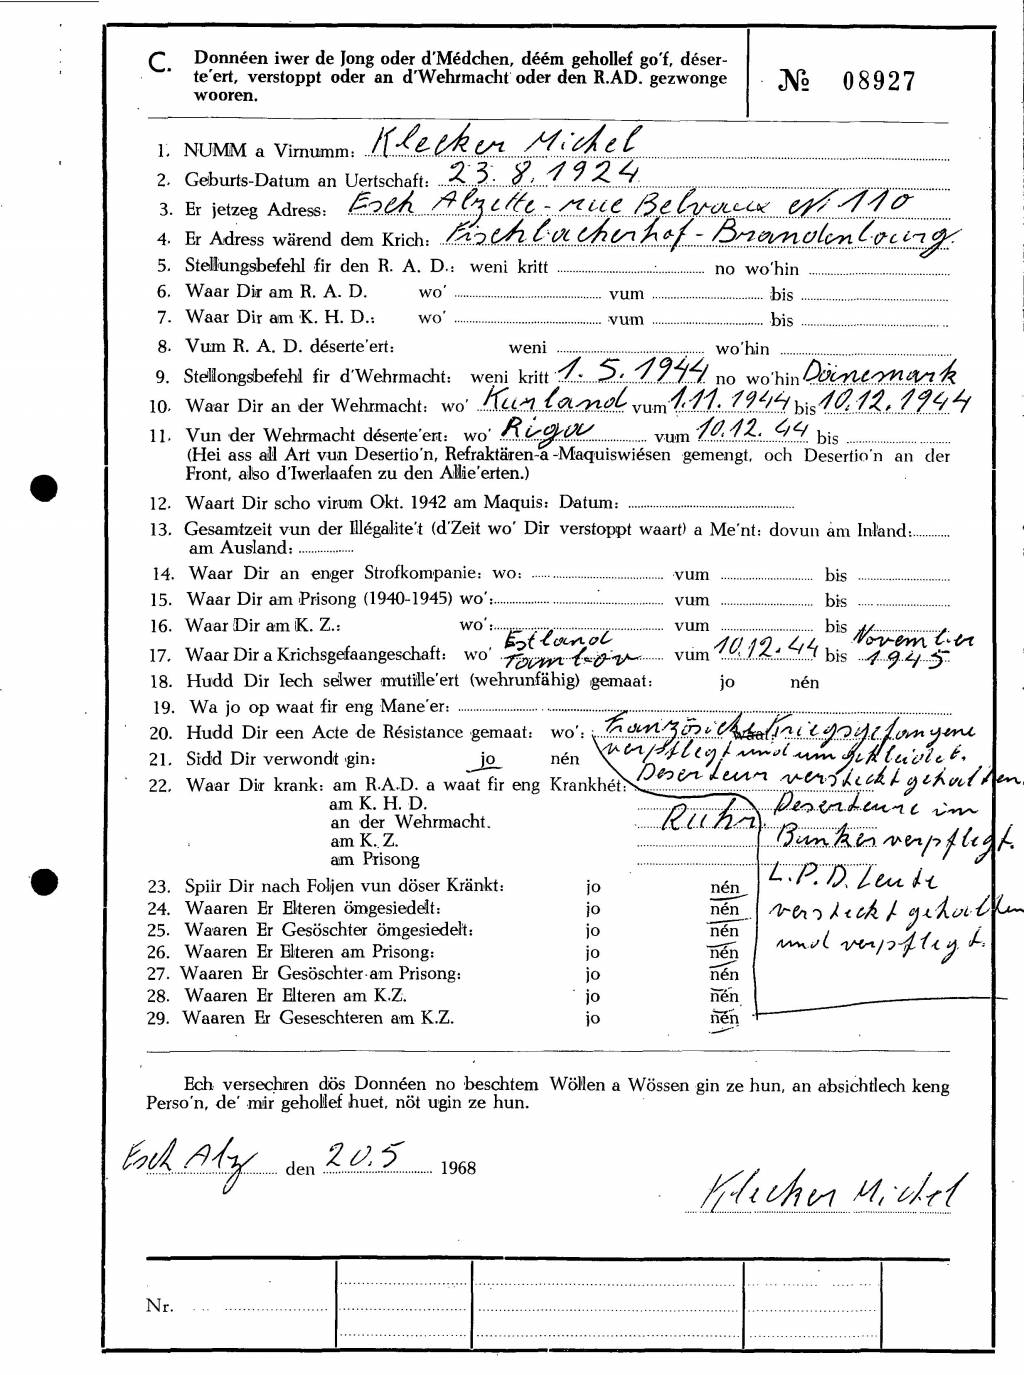 C. Donnéen iwer de Jong oder d'Médchen, déém gehollef go'f, déser-
te'ert, verstoppt oder an d'Wehrmacht oder den R.AD. gezwonge
wooren.
№ 08927
1. NUMM a Virnumm: Klecker Michel
2. Geburts-Datum an Uertschaft: 23. 8. 1924
3. Er jetzeg Adress: Esch Alzette - rue Belvaux Nr 110
4. Er Adress wärend dem Krich: Fischbacherhof - Brandenbourg.
5. Stellungsbefehl fir den R. A. D.: weni kritt no wo'hin
6. Waar Dir am R. A. D. wo' vum bis
7. Waar Dir am K. H. D.: wo' vum bis
8. Vum R. A. D. déserte'ert: weni wo'hin
9. Stellongsbefehl fir d'Wehrmacht: weni kritt 1. 5. 1944 no wo'hin Dänemark
10. Waar Dir an der Wehrmacht: wo' Kurland vum 1.11. 1944 bis 10.12. 1944
11. Vun der Wehrmacht déserte'ert: wo' Riga vum 10.12. 44 bis
(Hei ass all Art vun Desertio'n, Refraktären-a-Maquiswiésen gemengt, och Desertio'n an der
Front, also d'Iwerlaafen zu den Allie'erten.)
12. Waart Dir scho virum Okt. 1942 am Maquis: Datum:
13. Gesamtzeit vun der Illégalite't (d'Zeit wo' Dir verstoppt waart) a Me'nt: dovun am Inland:
am Ausland:
14. Waar Dir an enger Strofkompanie: wo: vum bis
15. Waar Dir am Prisong (1940-1945) wo': vum bis
16. Waar Dir am K. Z.: wo': vum bis
17. Waar Dir a Krichsgefaangeschaft: wo' Estland Tambov vum 10.12.44 bis November 1945
18. Hudd Dir Iech selwer mutille'ert (wehrunfähig) gemaat: jo nén
19. Wa jo op waat fir eng Mane'er:
20. Hudd Dir een Acte de Résistance gemaat: wo': waat: Französiche Kriegsgefangene
verpflegt und umgekleidet.
21. Sidd Dir verwondt gin: jo nén
Deserteur versteckt gehalten
22. Waar Dir krank: am R.A.D. a waat fir eng Krankhét:
am K. H. D.
Deserteure im
an der Wehrmacht. Ruhr.
Bunker verpflegt.
am K. Z.
am Prison­g
L.P.D. Leute
23. Spiir Dir nach Foljen vun döser Kränkt: jo nén
24. Waaren Er Elteren ömgesiedelt: jo nén
versteckt gehalten
25. Waaren Er Gesöschter ömgesiedelt: jo nén
und verpflegt.
26. Waaren Er Elteren am Prisong: jo nén
27. Waaren Er Gesöschter am Prisong: jo nén
28. Waaren Er Elteren am K.Z. jo nén
29. Waaren Er Geseschteren am K.Z. jo nén
Ech versechren dös Donnéen no beschtem Wöllen a Wössen gin ze hun, an absichtlech keng
Perso'n, de' mir gehollef huet, nöt ugin ze hun.
Esch Alz den 20.5 1968
Klecker Michel
Nr.